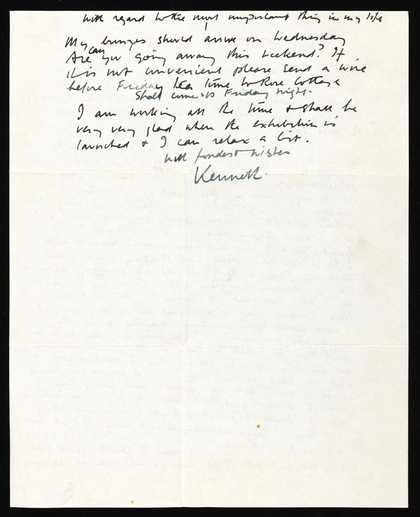 with regard to the most important thing in my life
My bronzes should arrive on Wednesday
Are you going away this weekend? If
it is not convenient please send a wire
before Friday tea time to Rose Cottage
Shall come Friday night.
I am working all the time & shall be
very very glad when the exhibition is
launched & I can relax a bit.
with fondest wishes
Kenneth.